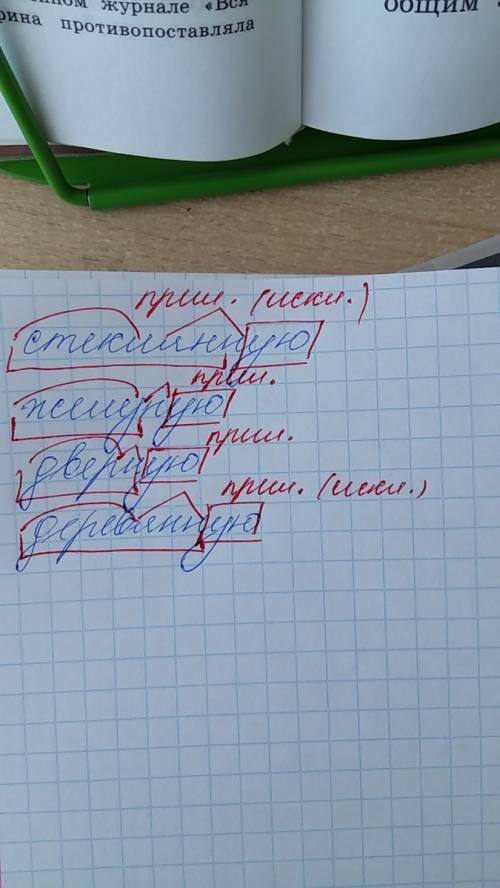 нном журнале «Вся
рина противопоставляла
общим
прил. (искл.)
стеклянную
прил.
дверную
прил.
прил. (искл.)
деревянную